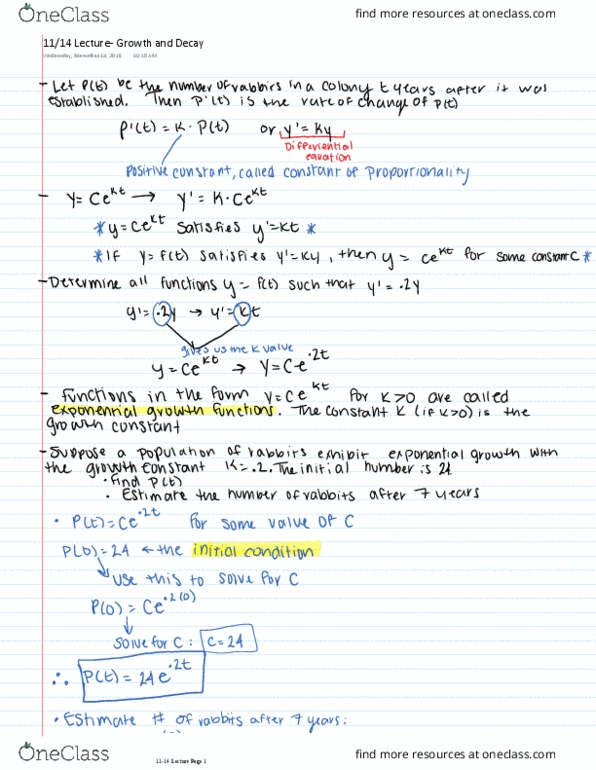 OneClass find more resources at oneclass.com
11/14 Lecture- Growth and Decay
Wednesday, November 14, 2018 10:10 AM
- Let P(t) be the number of rabbits in a colony t years after it was
established. Then P'(t) is the rate of change of P(t)
P'(t) = K · P(t) or y' = Ky
Differential
equation
Positive constant, called constant of proportionality
- y = Ce^kt → y' = K·Ce^kt
* y = Ce^kt satisfies y' = kt *
* If y = f(t) satisfies y' = ky, then y = ce^kt for some constant C *
- Determine all functions y = f(t) such that y' = .2y
y' = .2y → y' = kt
gives us the K value
y = Ce^kt → y = C e^.2t
- Functions in the form y = Ce^kt for K>0 are called
exponential growth functions. The constant K (if K>0) is the
growth constant
- Suppose a population of rabbits exhibit exponential growth with
the growth constant K = .2. The initial number is 24
• Find P(t)
• Estimate the number of rabbits after 7 years
• P(t) = Ce^.2t for some value of C
P(0) = 24 ← the initial condition
use this to solve for C
P(0) = Ce^.2(0)
↓
solve for C: C = 24
∴ P(t) = 24e^.2t
• Estimate # of rabbits after 7 years:
11-14 Lecture Page 1
OneClass find more resources at oneclass.com